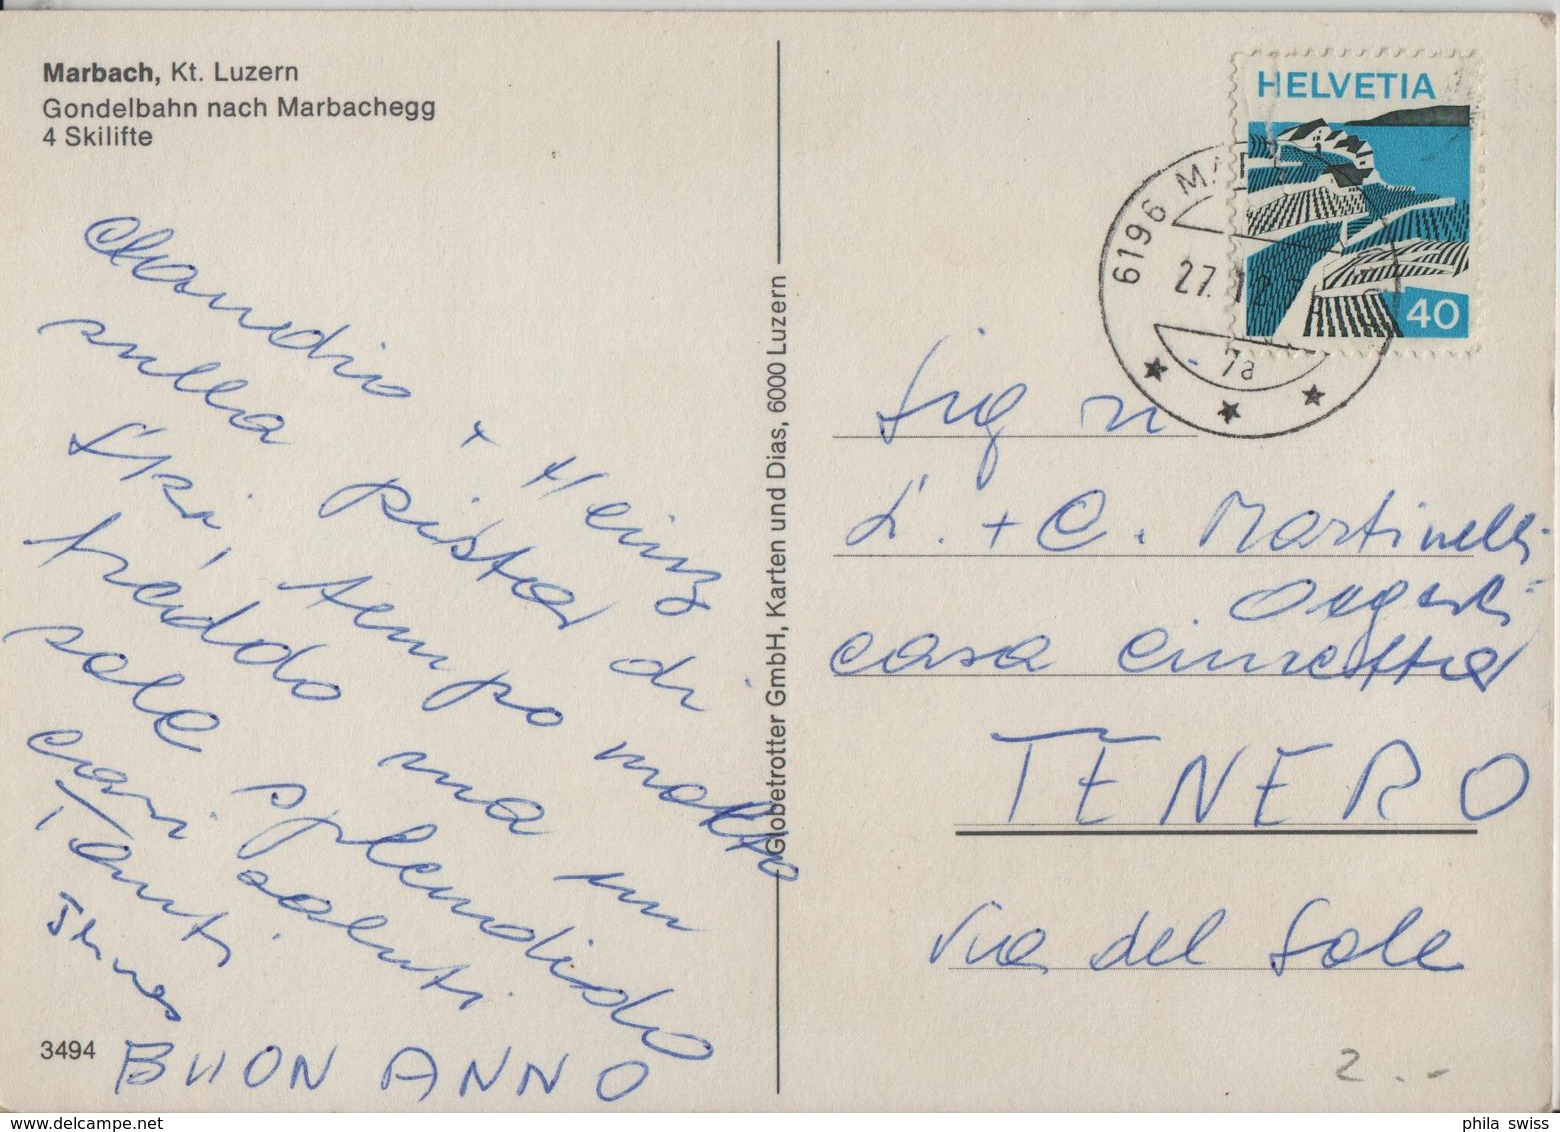 Marbach, Kt. Luzern
Gondelbahn nach Marbachegg
4 Skilifte
Claudio + Heinz
sulla pista di
Ski, tempo molto
freddo ma un
sole splendido
cari saluti
Tanti
BUON ANNO
3494
Globetrotter GmbH, Karten und Dias, 6000 Luzern
HELVETIA
40
6196 MARB
27. 12
7a
Sig n
L. + C. Martinelli
casa
TENERO
Via del Sole
2.-
phila swiss